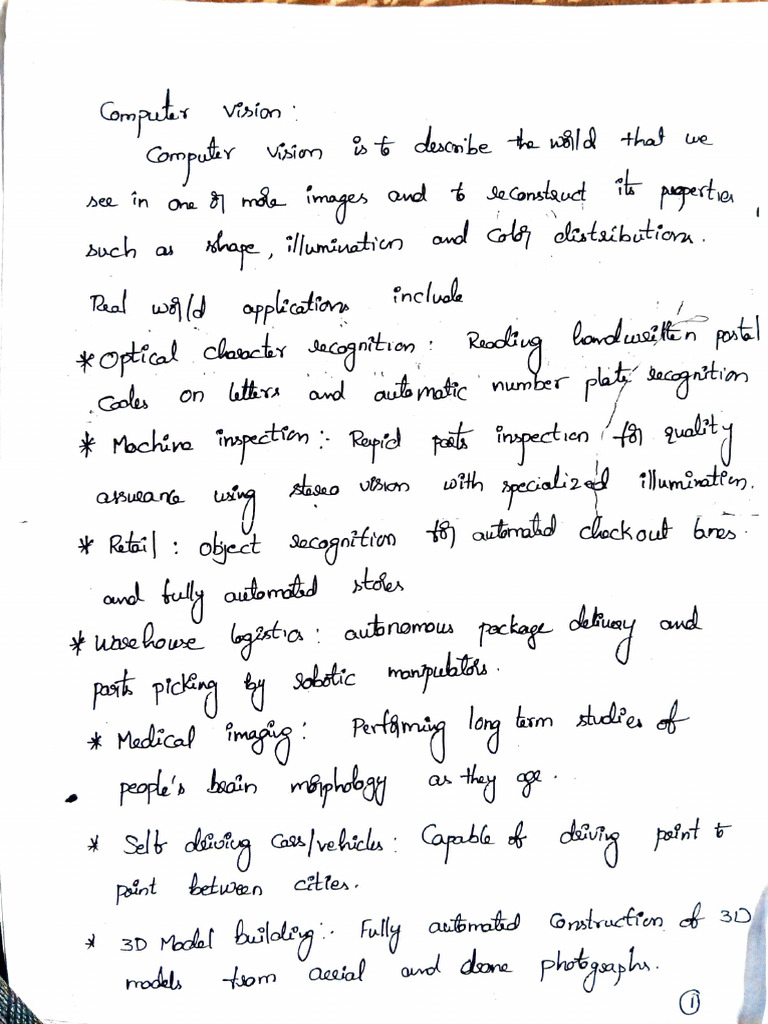 Computer vision:
Computer vision is to describe the world that we
see in one or more images and to reconstruct its properties
such as shape, illumination and color distributions.
Real world applications include
* Optical character recognition: Reading handwritten postal
codes on letters and automatic number plate recognition
* Machine inspection:- Rapid parts inspection for quality
assurance using stereo vision with specialized illumination.
* Retail: object recognition for automated checkout lanes.
and fully automated stores
* warehouse logistics: autonomous package delivery and
parts picking by robotic manipulators.
* Medical imaging: Performing long term studies of
people's brain morphology as they age.
* Self driving cars/vehicles: Capable of driving point to
point between cities.
* 3D Model building:- Fully automated construction of 3D
models from aerial and drone photographs.
1